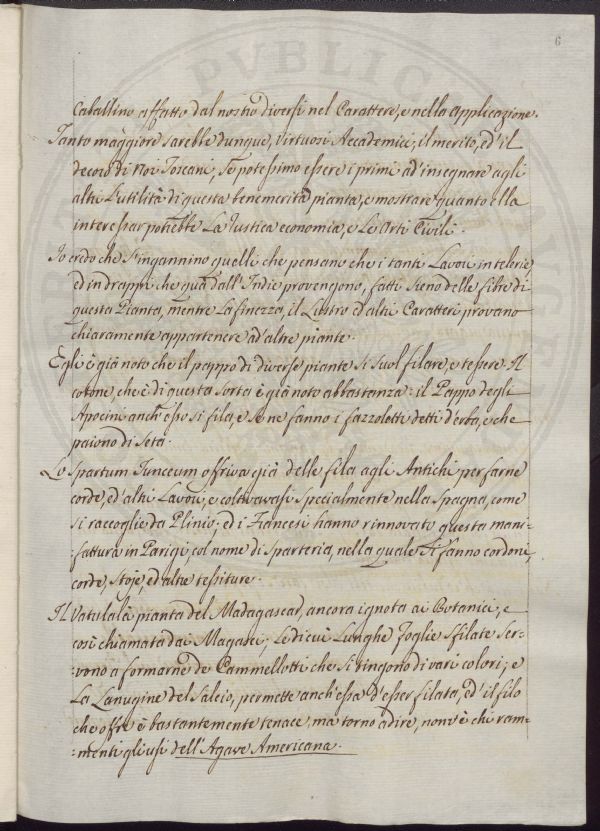 6
Caballino affatto dal nostro diversi nel Carattere, e nella applicazione.
Tanto maggiore sarebbe dunque, Virtuosi Accademici, il merito, ed il
decoro di Noi Toscani, se potessimo essere i primi ad' insegnare agli
altri L'utilità di questa benemerita pianta, e mostrare quanto ella
interessar potrebbe La Rustica economia, e Le Arti Civili.
Io credo che S'ingannino quelli che pensano che i tanti Lavori in telerie,
ed in drappi che quà dall'Indie provengono, fatti sieno delle fibre di
questa Pianta, mentre La finezza, il Lustro ed altri Caratteri provano
chiaramente appartenere ad altre piante.
Egli è già noto che il pappo di diverse piante si suol filare, e tessere. Il
cotone, che è di questa sorta è già noto abbastanza: il Pappo degli
Apocini anch'esso si fila, e se ne fanno i fazzoletti detti d'erba, e che
paiono di Seta.
Lo Spartum Junceum offriva già delle fila agli Antichi per farne
corde, ed altri Lavori, e coltivavasi specialmente nella Spagna, come
si raccoglie da Plinio; ed i Francesi hanno rinnovato questa mani-
-fattura in Parigi, col nome di Sparteria, nella quale si fanno cordoni,
corde, stoje, ed altre tessiture.
Il Vatulalà pianta del Madagascar, ancora ignota ai Botanici, e
così chiamata dai Magassi, Le di cui Lunghe foglie sfilate ser-
vono a formarne de Cammellotti che si tingono di vari colori; e
La Lanugine del Salcio, permette anch'essa d'esser filata, ed il filo
che offre è bastantemente tenace, ma torno a dire, non v'è chi ram-
-menti gli usi dell'Agave Americana.